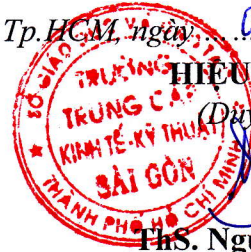 Tp.HCM, ngày.....
HIỆU
(Duy
SỞ GIÁO DỤC VÀ ĐÀO T
TRƯỜNG
TRUNG C
KINH TẾ-KỸ THUẬT
SÀI GÒN
THÀNH PHỐ HỒ CHÍ MINH
ThS. Ng